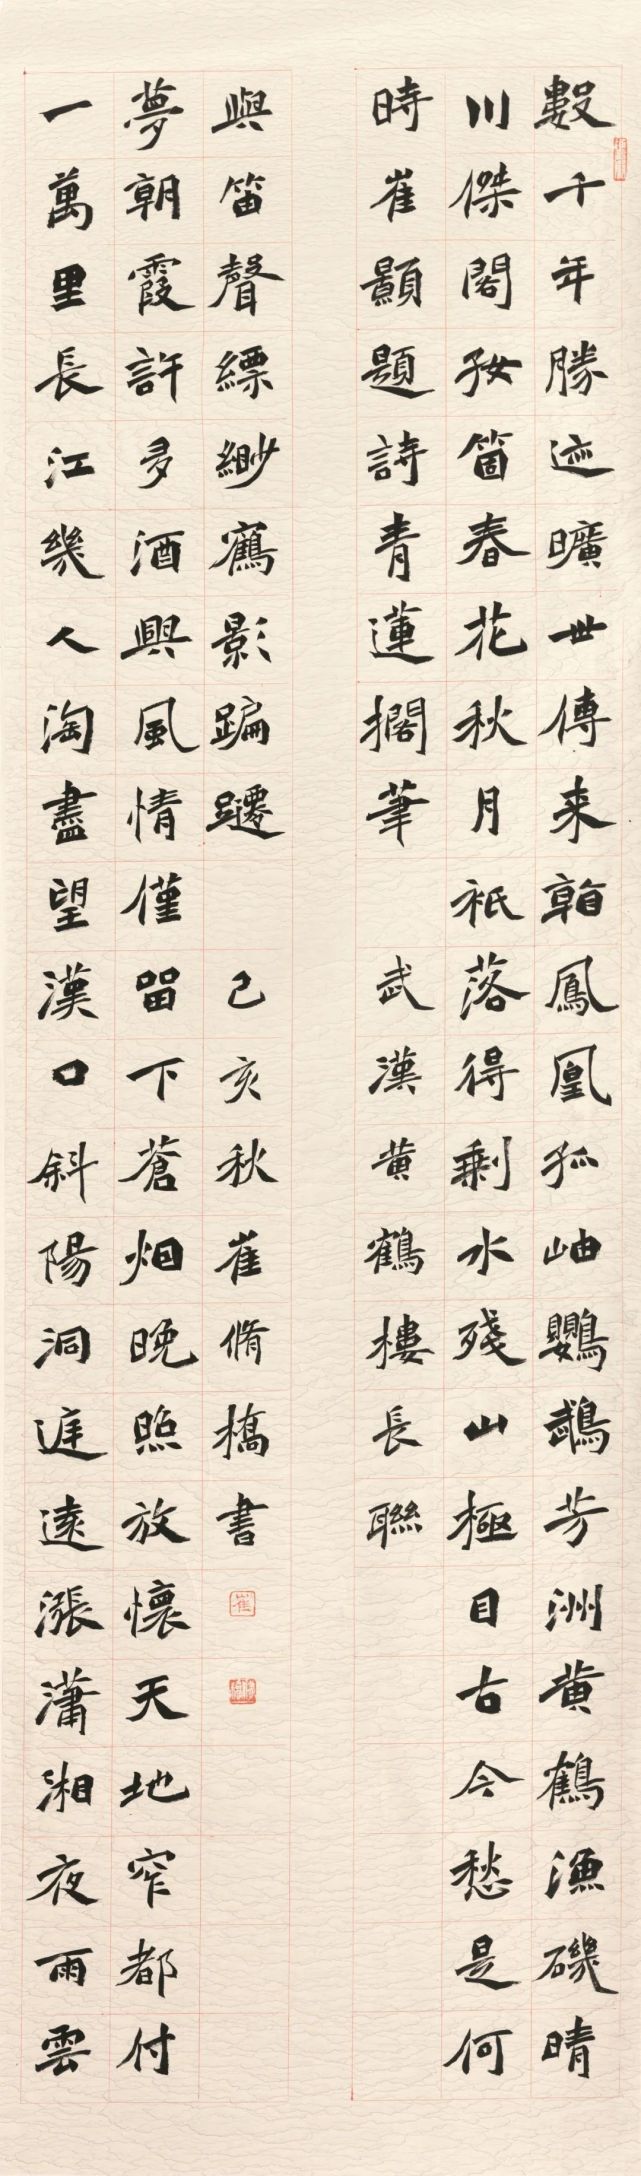 數千年勝迹曠世傳來看鳳凰孤岫鸚鵡芳洲黃鶴漁磯晴
川傑閣好箇春花秋月祇落得剩水殘山極目古今愁是何
時崔顥題詩青蓮擱筆 武漢黃鶴樓長聯
一萬里長江幾人淘盡望漢口斜陽洞庭遠漲瀟湘夜雨雲
夢朝霞許多酒興風情僅留下蒼烟晚照放懷天地窄都付
與笛聲縹緲鶴影蹁躚 己亥秋崔脩橋書
崔